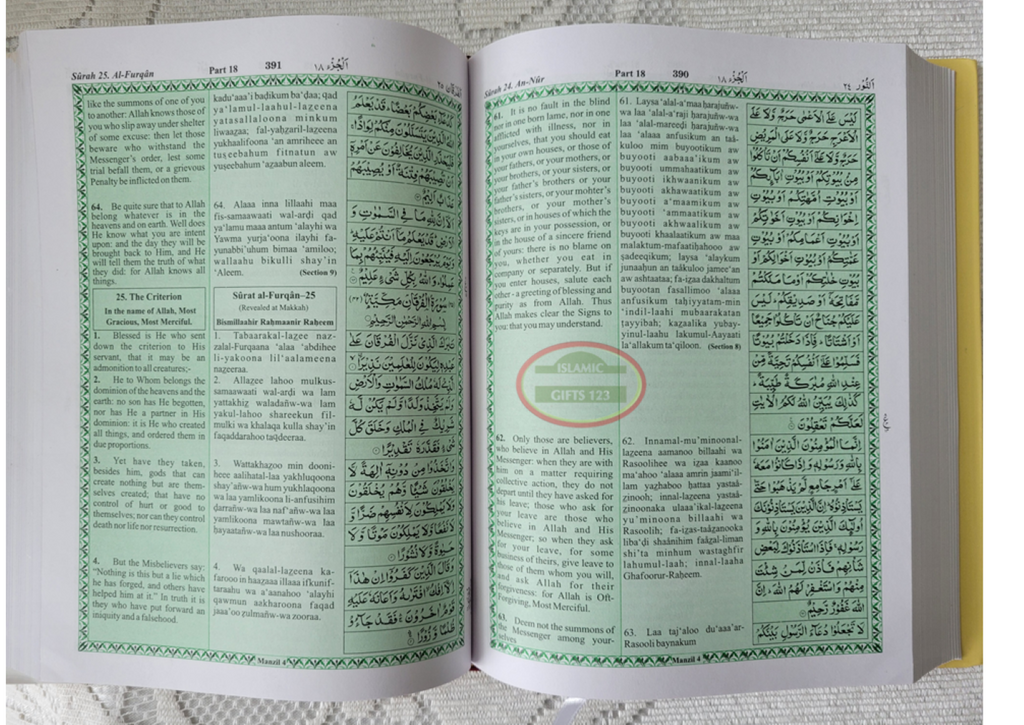 Sūrah 24. An-Nūr
Part 18
390
اَلْجُزْءُ ١٨
اَلنُّوْر ٢٤
61. It is no fault in the blind
nor in one born lame, nor in one
afflicted with illness, nor in
yourselves, that you should eat
in your own houses, or those of
your fathers, or your mothers, or
your brothers, or your sisters, or
your father's brothers or your
father's sisters, or your mohter's
brothers, or your mother's
sisters, or in houses of which the
keys are in your possession, or
in the house of a sincere friend
of yours: there is no blame on
you, whether you eat in
company or separately. But if
you enter houses, salute each
other - a greeting of blessing and
purity as from Allah. Thus
Allah makes clear the Signs to
you: that you may understand.
62. Only those are believers,
who believe in Allah and His
Messenger: when they are with
him on a matter requiring
collective action, they do not
depart until they have asked for
his leave; those who ask for
your leave are those who
believe in Allah and His
Messenger; so when they ask
for your leave, for some
business of theirs, give leave to
those of them whom you will,
and ask Allah for their
forgiveness: for Allah is Oft-
Forgiving, Most Merciful.
63. Deem not the summons of
the Messenger among your-
selves
61. Laysa 'alal-a'maa ḥarajuñw-
wa laa 'alal-a'raji ḥarajuñw-wa
laa 'alal-mareeḍi ḥarajuñw-wa
laa 'alaaa anfusikum an taâ-
kuloo mim buyootikum aw
buyooti aabaaa'ikum aw
buyooti ummahaatikum aw
buyooti ikhwaanikum aw
buyooti akhawaatikum aw
buyooti a'maamikum aw
buyooti 'ammaatikum aw
buyooti akhwaalikum aw
buyooti khaalaatikum aw maa
malaktum-mafaatiḥahooo aw
ṣadeeqikum; laysa 'alaykum
junaaḥun an taâkuloo jamee'an
aw ashtaataa; fa-izaa dakhaltum
buyootan fasallimoo 'alaaa
anfusikum taḥiyyatam-min
'indil-laahi mubaarakatan
ṭayyibah; kazaalika yubay-
yinul-laahu lakumul-Aayaati
la'allakum ta'qiloon. (Section 8)
62. Innamal-mu'minoonal-
lazeena aamanoo billaahi wa
Rasoolihee wa izaa kaanoo
ma'ahoo 'alaaa amrin jaami'il-
lam yazhaboo ḥattaa yastaâ-
zinooh; innal-lazeena yastaâ-
zinoonaka ulaaa'ikal-lazeena
yu'minoona billaahi wa
Rasoolih; fa-izas-taâzanooka
liba'ḍi shaânihim faâzal-liman
shi'ta minhum wastaghfir
lahumul-laah; innal-laaha
Ghafoorur-Raḥeem.
63. Laa taj'aloo du'aaa'ar-
Rasooli baynakum
لَيْسَ عَلَى الْاَعْمٰى حَرَجٌ وَّلَا عَلَى
الْاَعْرَجِ حَرَجٌ وَّلَا عَلَى الْمَرِيْضِ
حَرَجٌ وَّلَا عَلٰٓى اَنْفُسِكُمْ اَنْ تَاْكُلُوْا
مِنْۢ بُيُوْتِكُمْ اَوْ بُيُوْتِ اٰبَآئِكُمْ
اَوْ بُيُوْتِ اُمَّهٰتِكُمْ اَوْ بُيُوْتِ
اِخْوَانِكُمْ اَوْ بُيُوْتِ اَخَوٰتِكُمْ
اَوْ بُيُوْتِ اَعْمَامِكُمْ اَوْ بُيُوْتِ
عَمّٰتِكُمْ اَوْ بُيُوْتِ اَخْوَالِكُمْ اَوْ
بُيُوْتِ خٰلٰتِكُمْ اَوْ مَا مَلَكْتُمْ
مَّفَاتِحَهٗٓ اَوْ صَدِيْقِكُمْ ؕ لَيْسَ
عَلَيْكُمْ جُنَاحٌ اَنْ تَاْكُلُوْا جَمِيْعًا
اَوْ اَشْتَاتًا ؕ فَاِذَا دَخَلْتُمْ بُيُوْتًا
فَسَلِّمُوْا عَلٰٓى اَنْفُسِكُمْ تَحِيَّةً مِّنْ
عِنْدِ اللّٰهِ مُبٰرَكَةً طَيِّبَةً ؕ
كَذٰلِكَ يُبَيِّنُ اللّٰهُ لَكُمُ الْاٰيٰتِ
لَعَلَّكُمْ تَعْقِلُوْنَ
اِنَّمَا الْمُؤْمِنُوْنَ الَّذِيْنَ اٰمَنُوْا
بِاللّٰهِ وَرَسُوْلِهٖ وَاِذَا كَانُوْا مَعَهٗ
عَلٰٓى اَمْرٍ جَامِعٍ لَّمْ يَذْهَبُوْا حَتّٰى
يَسْتَاْذِنُوْهُ ؕ اِنَّ الَّذِيْنَ يَسْتَاْذِنُوْنَكَ
اُولٰٓئِكَ الَّذِيْنَ يُؤْمِنُوْنَ بِاللّٰهِ وَ
رَسُوْلِهٖ ۚ فَاِذَا اسْتَاْذَنُوْكَ لِبَعْضِ
شَاْنِهِمْ فَاْذَنْ لِّمَنْ شِئْتَ
مِنْهُمْ وَاسْتَغْفِرْ لَهُمُ اللّٰهَ ؕ اِنَّ
اللّٰهَ غَفُوْرٌ رَّحِيْمٌ
لَا تَجْعَلُوْا دُعَآءَ الرَّسُوْلِ بَيْنَكُمْ
Manzil 4
ISLAMIC
GIFTS 123
Sūrah 25. Al-Furqān
Part 18
391
اَلْجُزْءُ ١٨
like the summons of one of you
to another: Allah knows those of
you who slip away under shelter
of some excuse: then let those
beware who withstand the
Messenger's order, lest some
trial befall them, or a grievous
Penalty be inflicted on them.
64. Be quite sure that to Allah
belong whatever is in the
heavens and on earth. Well does
He know what you are intent
upon: and the day they will be
brought back to Him, and He
will tell them the truth of what
they did: for Allah knows all
things.
25. The Criterion
In the name of Allah, Most
Gracious, Most Merciful.
1. Blessed is He who sent
down the criterion to His
servant, that it may be an
admonition to all creatures;-
2. He to Whom belongs the
dominion of the heavens and the
earth: no son has He begotten,
nor has He a partner in His
dominion: it is He who created
all things, and ordered them in
due proportions.
3. Yet have they taken,
besides him, gods that can
create nothing but are them-
selves created; that have no
control of hurt or good to
themselves; nor can they control
death nor life nor resurrection.
4. But the Misbelievers say:
"Nothing is this but a lie which
he has forged, and others have
helped him at it." In truth it is
they who have put forward an
iniquity and a falsehood.
kadu'aaa'i baḍikum ba'ḍaa; qad
ya'lamul-laahul-lazeena
yatasallaloona minkum
liwaazaa; fal-yaḥzaril-lazeena
yukhaalifoona 'an amriheee an
tuṣeebahum fitnatun aw
yuṣeebahum 'azaabun aleem.
64. Alaaa inna lillaahi maa
fis-samaawaati wal-arḍi qad
ya'lamu maaa antum 'alayhi wa
Yawma yurja'oona ilayhi fa-
yunabbi'uhum bimaa 'amiloo;
wallaahu bikulli shay'in
'Aleem. (Section 9)
Sūrat al-Furqān–25
(Revealed at Makkah)
Bismillaahir Raḥmaanir Raḥeem
1. Tabaarakal-lazee naz-
zalal-Furqaana 'alaa 'abdihee
li-yakoona lil'aalameena
nazeeraa.
2. Allazee lahoo mulkus-
samaawaati wal-arḍi wa lam
yattakhiz waladañw-wa lam
yakul-lahoo shareekun fil-
mulki wa khalaqa kulla shay'in
faqaddarahoo taqdeeraa.
3. Wattakhazoo min dooni-
heee aalihatal-laa yakhluqoona
shay'añw-wa hum yukhlaqoona
wa laa yamlikoona li-anfusihim
ḍarrañw-wa laa naf'añw-wa laa
yamlikoona mawtañw-wa laa
ḥayaatañw-wa laa nushooraa.
4. Wa qaalal-lazeena ka-
farooo in haazaaa illaaa ifkunif-
taraahu wa a'aanahoo 'alayhi
qawmun aakharoona faqad
jaaa'oo ẓulmañw-wa zooraa.
كَدُعَآءِ بَعْضِكُمْ بَعْضًا ؕ قَدْ يَعْلَمُ
اللّٰهُ الَّذِيْنَ يَتَسَلَّلُوْنَ مِنْكُمْ لِوَاذًا ۚ
فَلْيَحْذَرِ الَّذِيْنَ يُخَالِفُوْنَ عَنْ اَمْرِهٖٓ
اَنْ تُصِيْبَهُمْ فِتْنَةٌ اَوْ يُصِيْبَهُمْ
عَذَابٌ اَلِيْمٌ
اَلَآ اِنَّ لِلّٰهِ مَا فِى السَّمٰوٰتِ وَ
الْاَرْضِ ؕ قَدْ يَعْلَمُ مَآ اَنْتُمْ عَلَيْهِ ؕ
وَيَوْمَ يُرْجَعُوْنَ اِلَيْهِ فَيُنَبِّئُهُمْ بِمَا
عَمِلُوْا ؕ وَاللّٰهُ بِكُلِّ شَيْءٍ عَلِيْمٌ
سُوْرَةُ الْفُرْقَانِ مَكِّيَّةٌ
بِسْمِ اللّٰهِ الرَّحْمٰنِ الرَّحِيْمِ
تَبٰرَكَ الَّذِيْ نَزَّلَ الْفُرْقَانَ عَلٰى
عَبْدِهٖ لِيَكُوْنَ لِلْعٰلَمِيْنَ نَذِيْرًا
الَّذِيْ لَهٗ مُلْكُ السَّمٰوٰتِ وَالْاَرْضِ
وَلَمْ يَتَّخِذْ وَلَدًا وَّلَمْ يَكُنْ لَّهٗ
شَرِيْكٌ فِى الْمُلْكِ وَخَلَقَ كُلَّ
شَيْءٍ فَقَدَّرَهٗ تَقْدِيْرًا
وَاتَّخَذُوْا مِنْ دُوْنِهٖٓ اٰلِهَةً لَّا
يَخْلُقُوْنَ شَيْـًٔا وَّهُمْ يُخْلَقُوْنَ
وَلَا يَمْلِكُوْنَ لِاَنْفُسِهِمْ ضَرًّا وَّ
لَا نَفْعًا وَّلَا يَمْلِكُوْنَ مَوْتًا وَّلَا
حَيٰوةً وَّلَا نُشُوْرًا
وَقَالَ الَّذِيْنَ كَفَرُوْٓا اِنْ هٰذَآ
اِلَّآ اِفْكُ افْتَرٰىهُ وَاَعَانَهٗ عَلَيْهِ
قَوْمٌ اٰخَرُوْنَ ۚ فَقَدْ جَآءُوْ
ظُلْمًا وَّزُوْرًا
Manzil 4